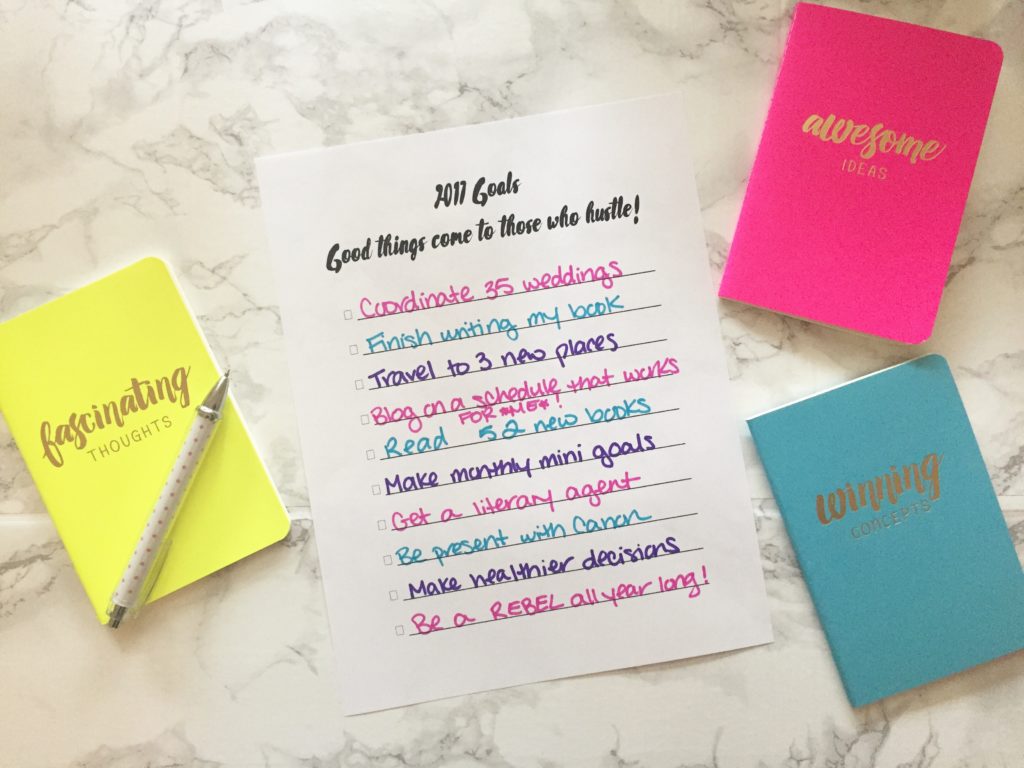 2017 Goals
Good things come to those who hustle!
Coordinate 35 weddings
Finish writing my book
Travel to 3 new places
Blog on a schedule that works
FOR *ME*!
Read 52 new books
Make monthly mini goals
Get a literary agent
Be present with Canon
Make healthier decisions
Be a REBEL all year long!
fascinating
THOUGHTS
awesome
IDEAS
winning
CONCEPTS